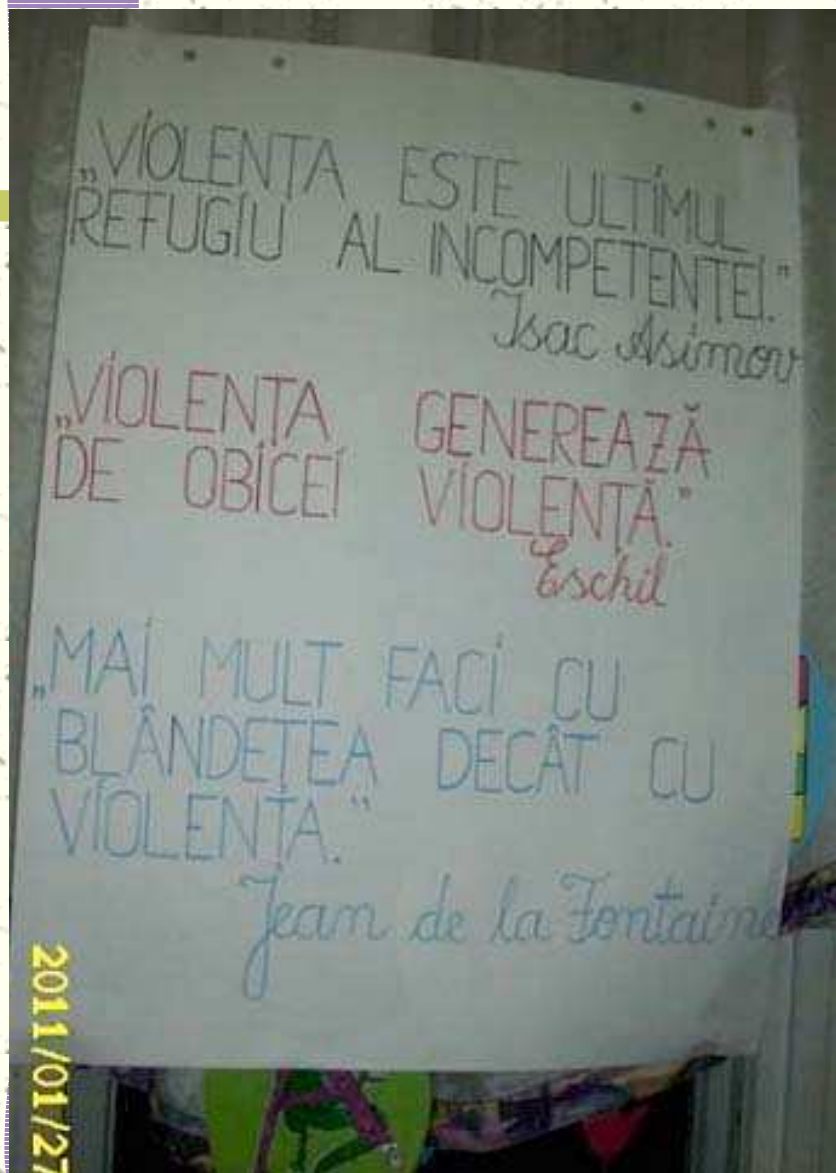 „VIOLENȚA ESTE ULTIMUL
REFUGIU AL INCOMPETENȚEI."
Isac Asimov
„VIOLENȚA GENEREAZĂ
DE OBICEI VIOLENȚĂ."
Eschil
„MAI MULT FACI CU
BLÂNDEȚEA DECÂT CU
VIOLENȚA."
Jean de la Fontaine
2011/01/27